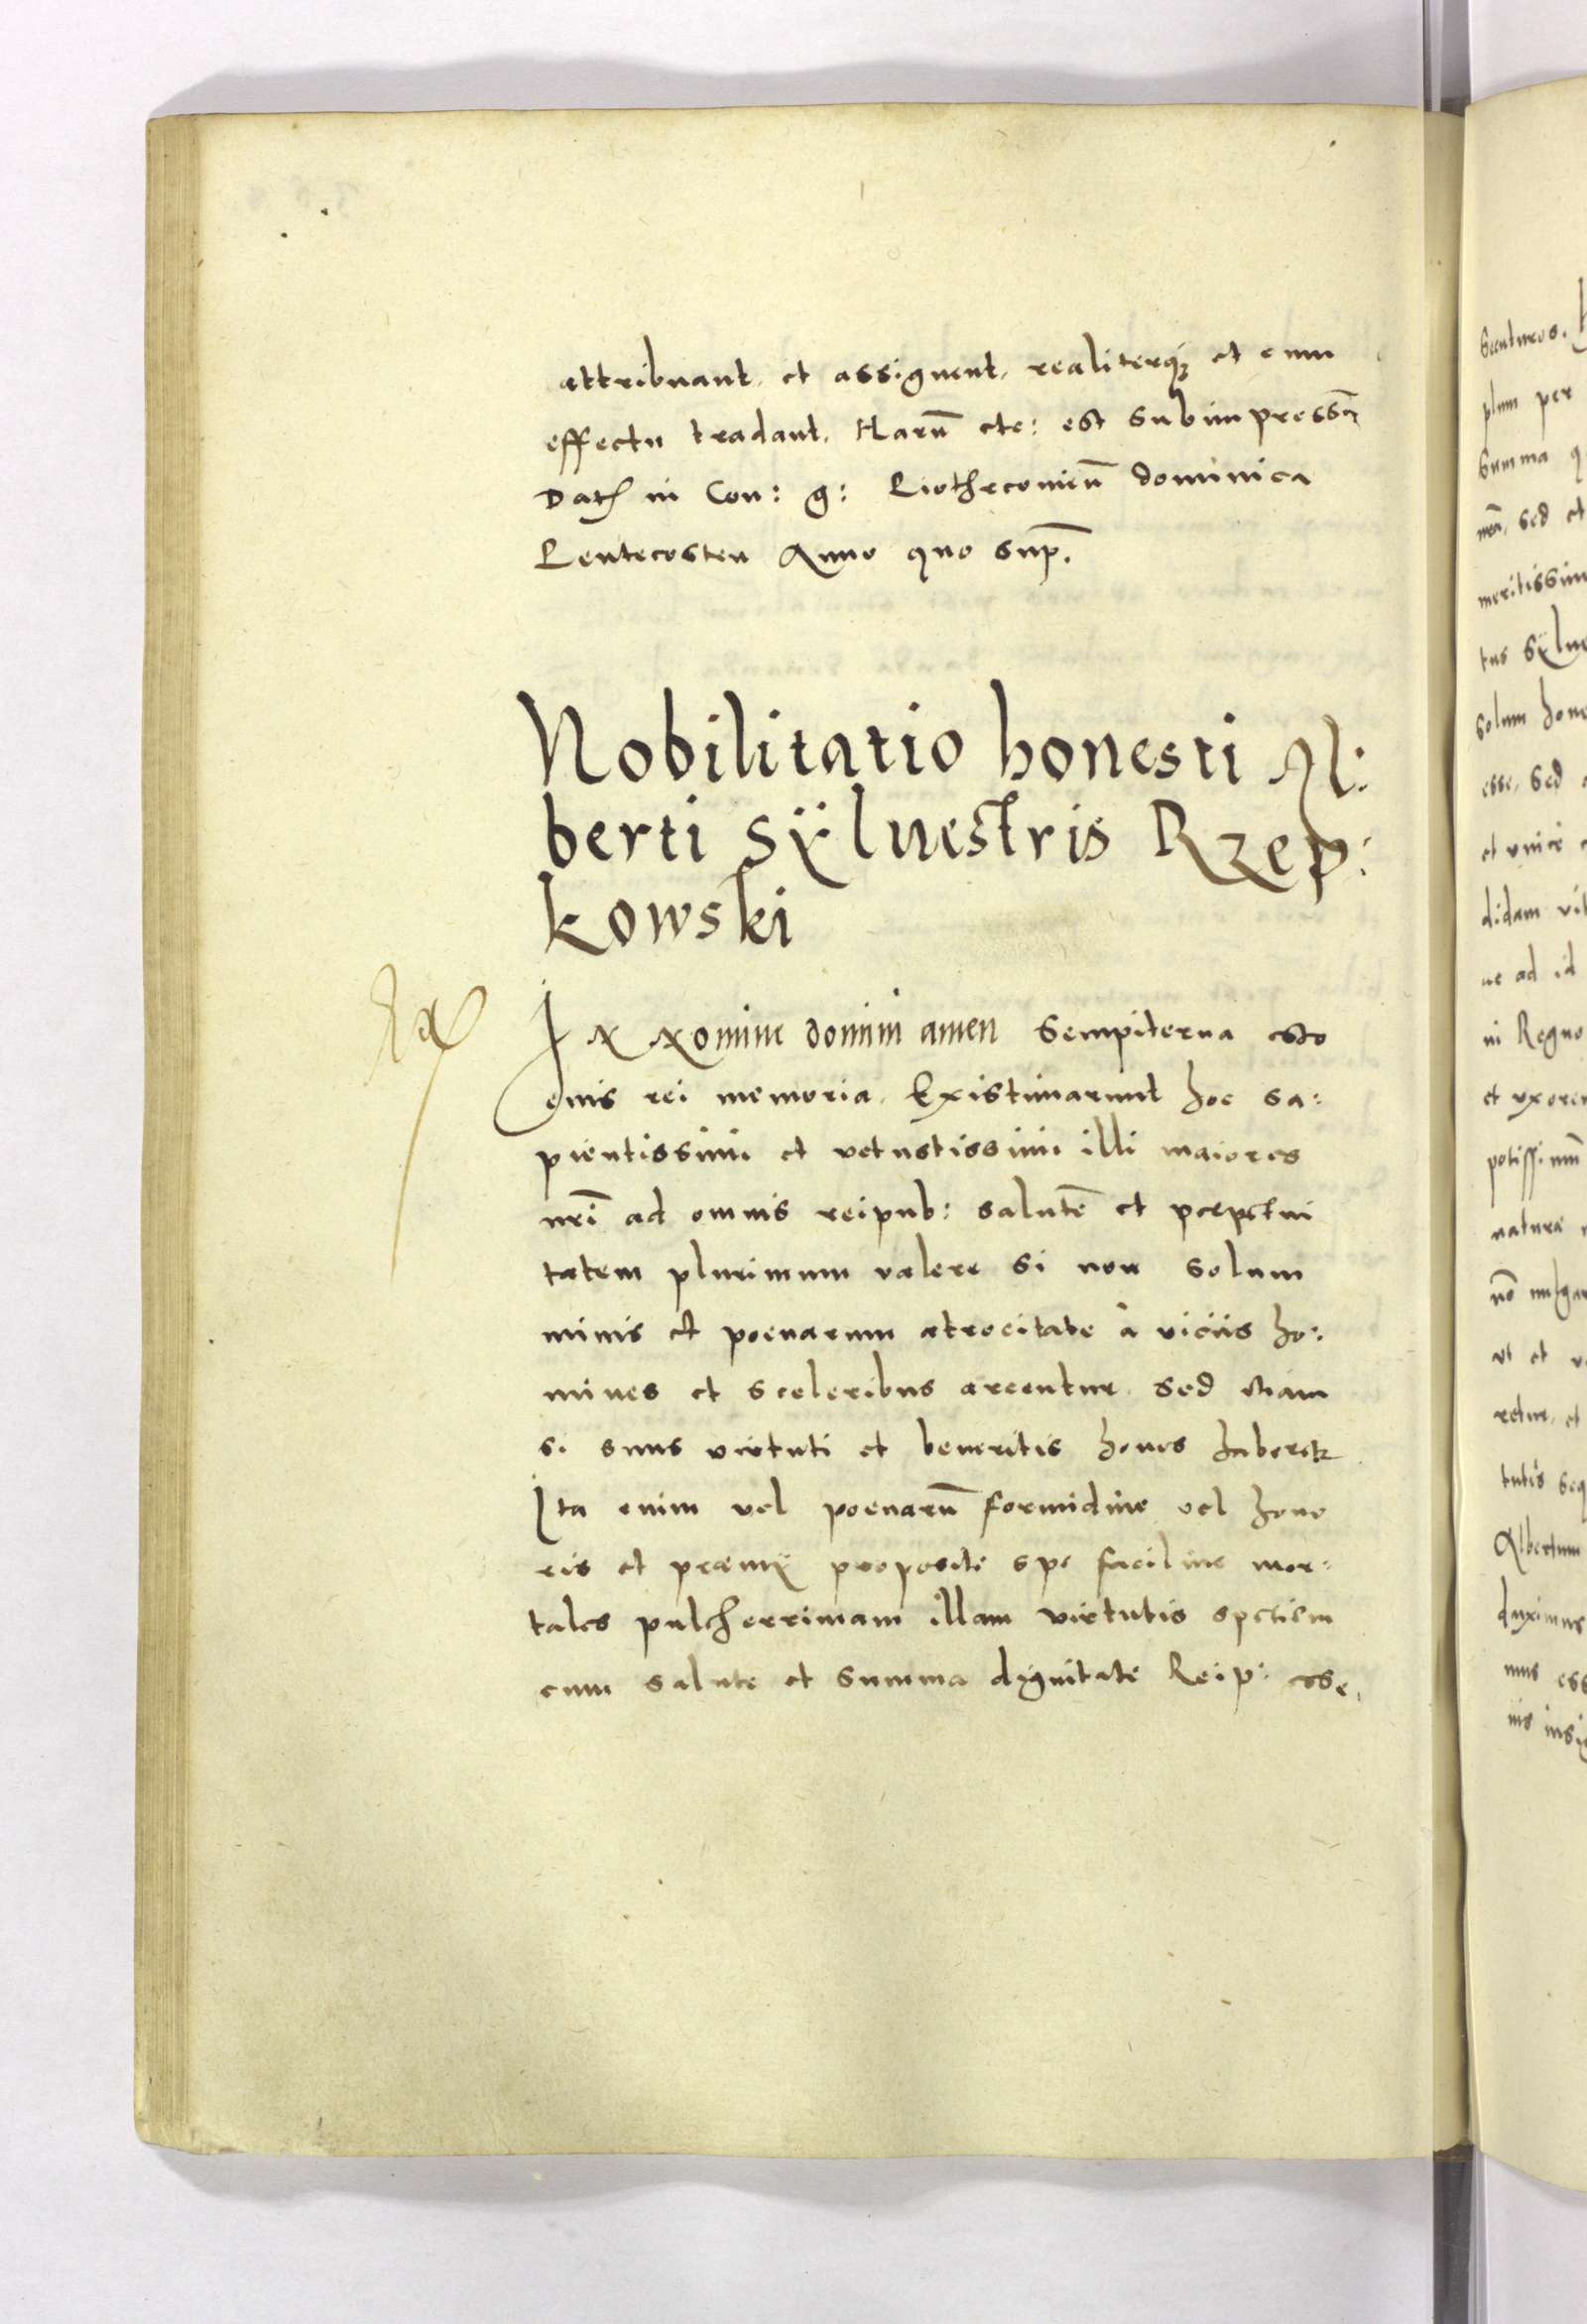 attribuant, et assignent, realiterq; et cum
effectu tradant. Harū etc: est subimpress~
Dat~ in Con: g: Piothrcouieñ dominica
Pentecosten Anno quo sup.
Nobilitatio honesti Al:
berti Sÿluestris Rzep:
kowski
IN Nomine domini amen Sempiterna esto
euis rei memoria. Existimarunt hoc sa:
pientissimi et vetustissimi illi maiores
nrī ad omnis reipub: salutē et perpetui
tatem plurimum valere si non solum
minis et poenarum atrocitate à viciis ho:
mines et sceleribus arceantur, sed etiam
si suus virtuti et bemeritis honos haberetr
Ita enim vel poenarū formidine vel hono
ris et præmÿ propositi spe facilius mor:
tales pulcherrimam illam virtutis spetiem
cum salute et summa dignitate Reip: esse,
secuturos.
plum per
summa
mā, sed et
meritissim
tus Sÿlue
solum hone
esse, sed
et vnicè
didam vit
ue ad id
in Regno
et vxorem
potissimū
natura
nō vulgar
vt et
retur, et
tutis seq
Albertum
duximus
mus ess
iis insig